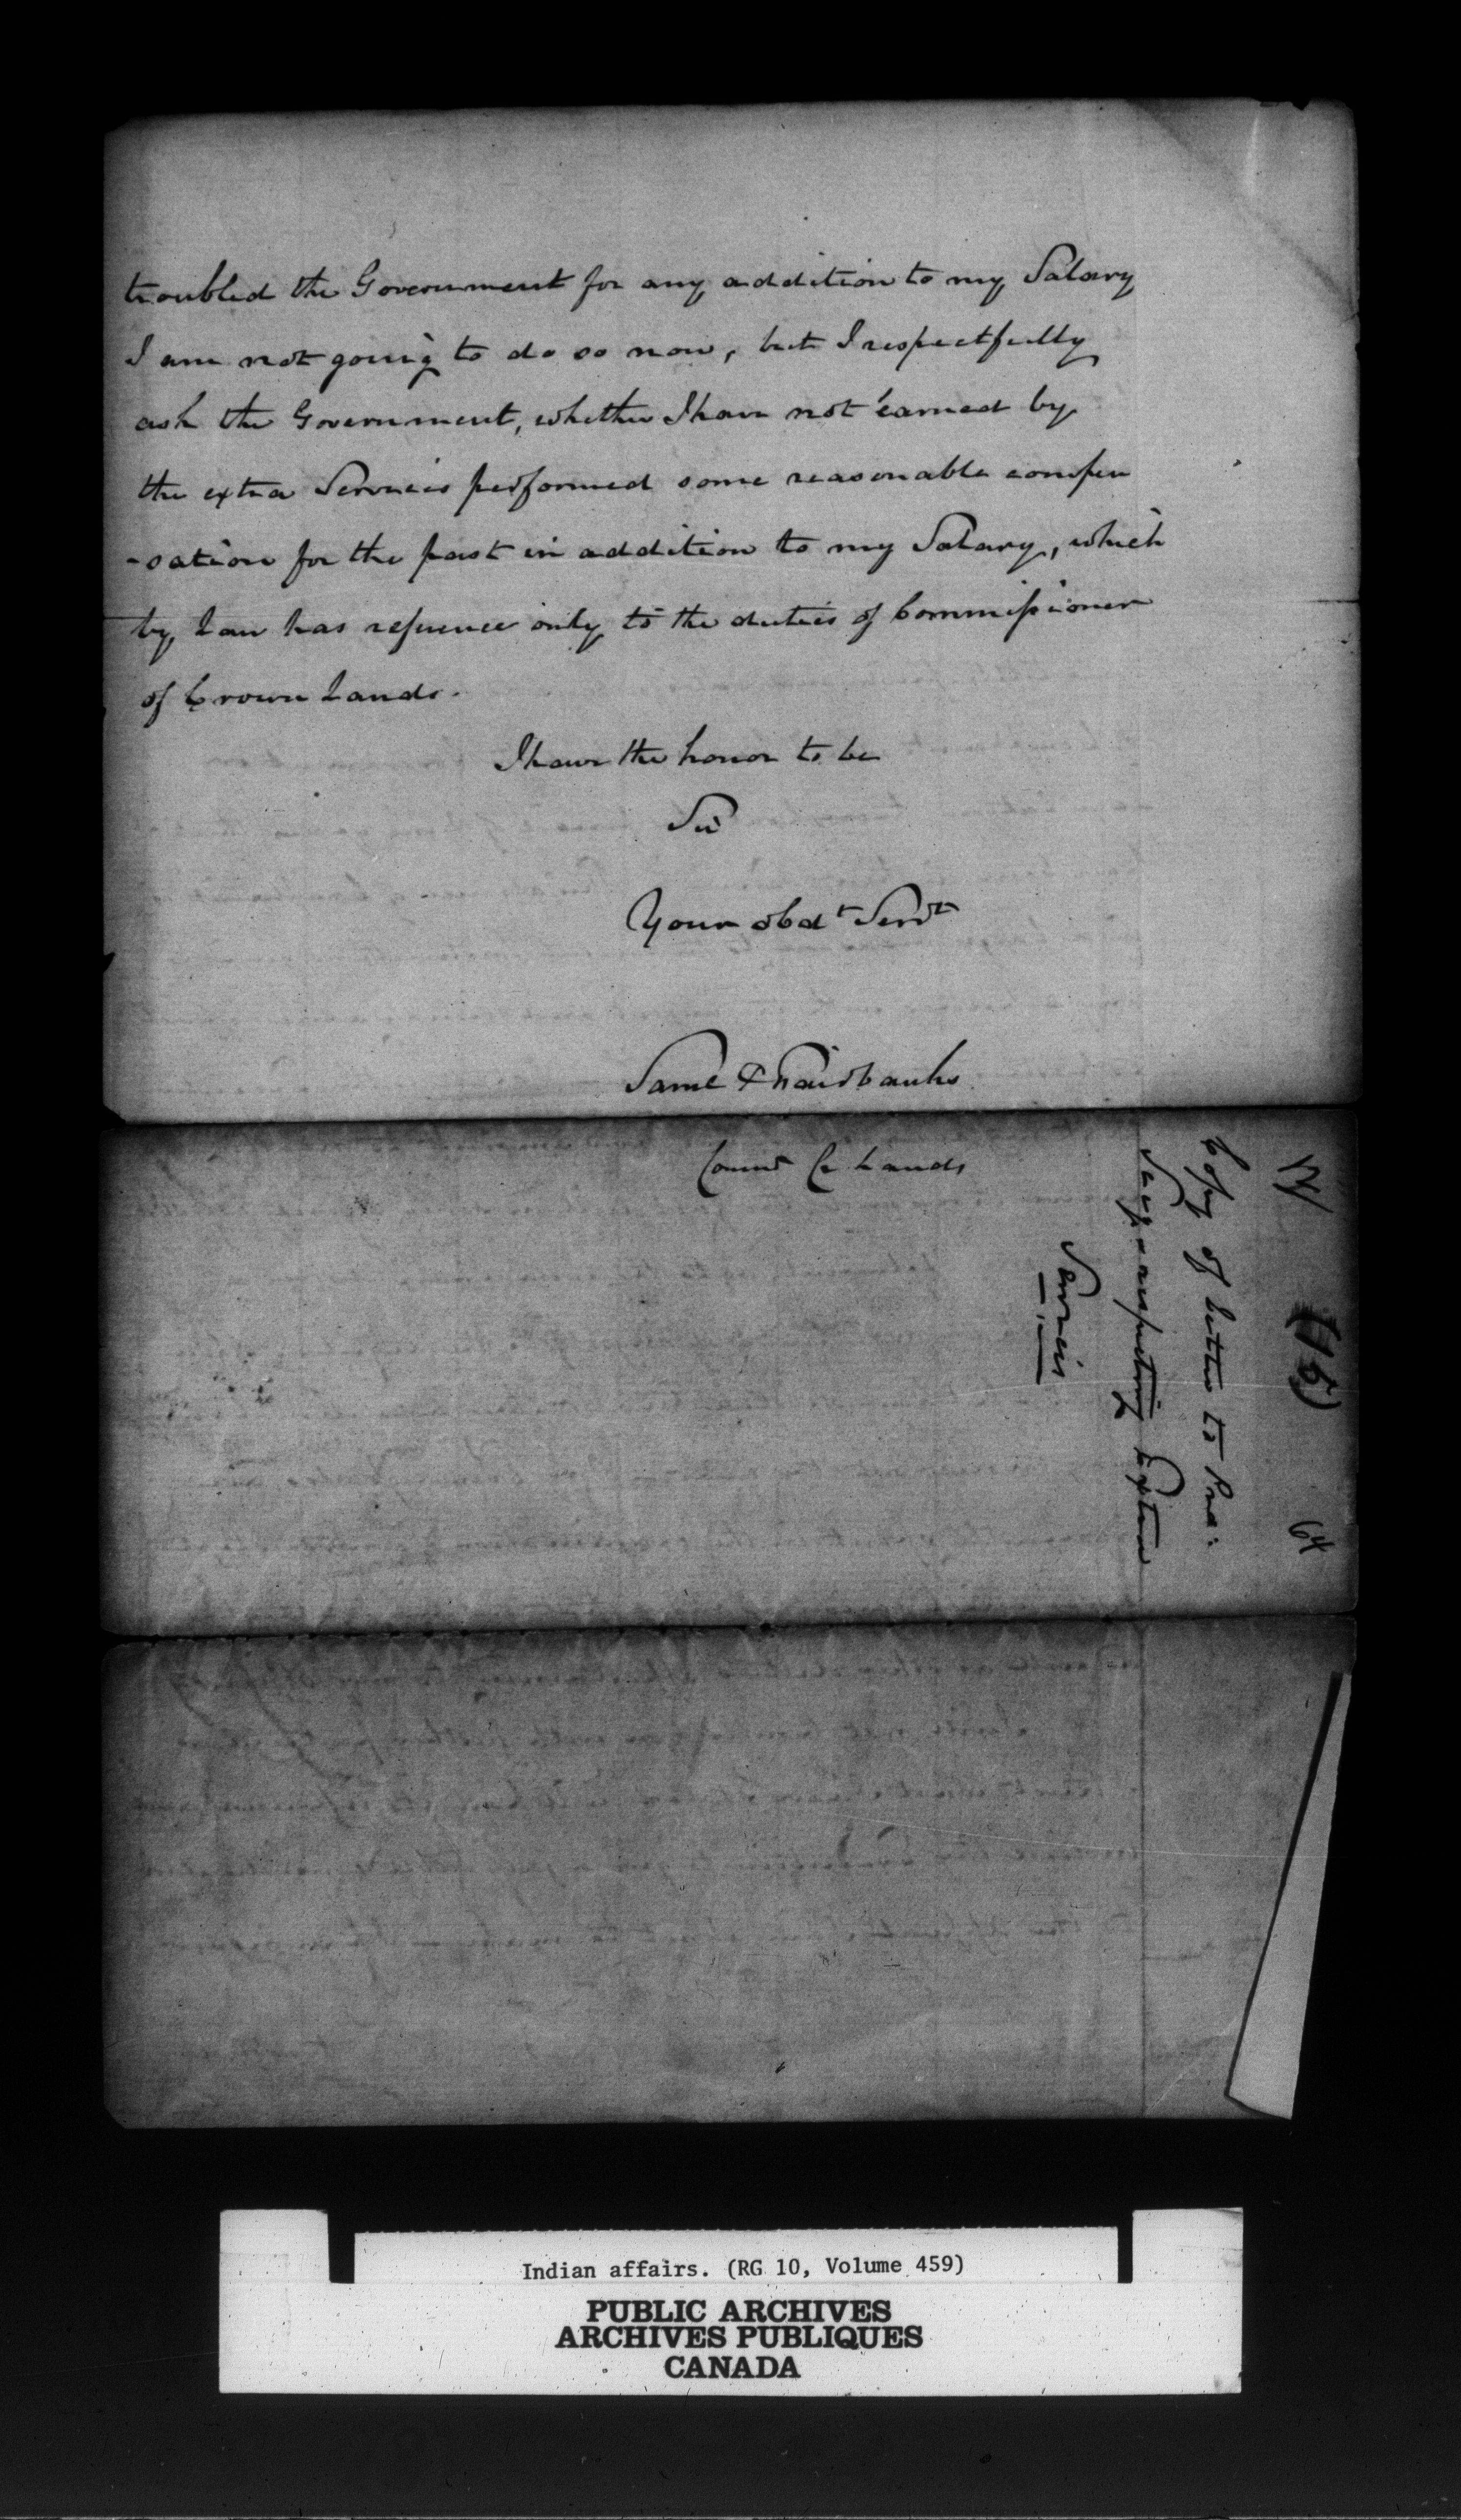 troubled the Government for any addition to my Salary
I am not going to do so now, but I respectfully
ask the Government, whether I have not earned by
the extra Services performed some reasonable compen
-sation for the past in addition to my Salary, which
by Law has refference only to the duties of Commissioner
of Crown Lands.
I have the honor to be
Sir
Your obdt Servt
Saml P Fairbanks
Commr Cr Lands
Copy of Letter to Prov:
Secy - respecting Extra
Services
64
Indian affairs. (RG 10, Volume 459)
PUBLIC ARCHIVES
ARCHIVES PUBLIQUES
CANADA